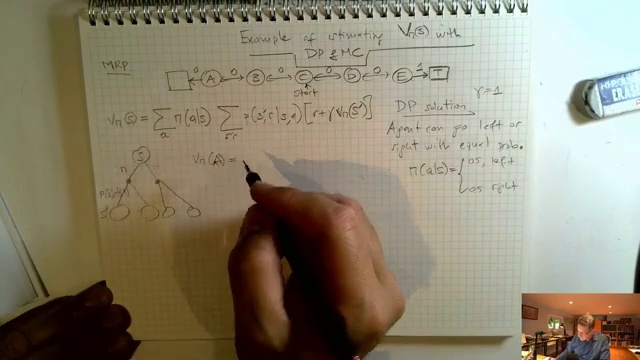 Example of estimating Vπ(s) with
DP & MC
MRP
0 A 0 B 0 C 0 D 0 E 1 T
start
Vπ(s) = Σ π(a|s) Σ p(s',r|s,a) [r + γ Vπ(s')]
a s'r
DP solution γ=1
Agent can go left or
right with equal prob.
π(a|s) = { 0.5, left
0.5 right
S
π
S'
Vπ(A) =
ERAS